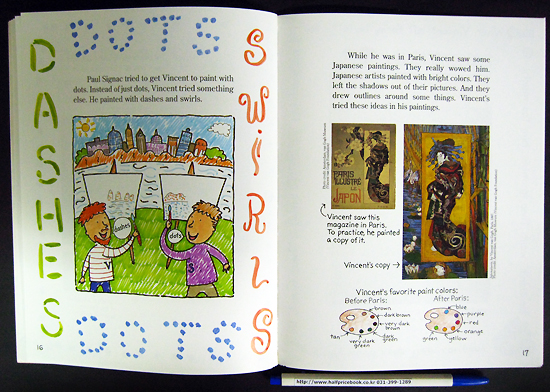 DOTS
DASHES
SWIRLS
Paul Signac tried to get Vincent to paint with
dots. Instead of just dots, Vincent tried something
else. He painted with dashes and swirls.
dashes
dots
V
S
DOTS
16
While he was in Paris, Vincent saw some
Japanese paintings. They really wowed him.
Japanese artists painted with bright colors. They
left the shadows out of their pictures. And they
drew outlines around some things. Vincent's
tried these ideas in his paintings.
PARIS
ILLUSTRÉ
LE
JAPON
Vincent saw this
magazine in Paris.
To practice, he painted
a copy of it.
Vincent's copy
Vincent's favorite paint colors:
Before Paris:
brown
dark brown
very dark
brown
dark
green
very dark
green
tan
After Paris:
blue
purple
red
orange
yellow
green
17
http://www.halfpricebook.co.kr 031-399-1289